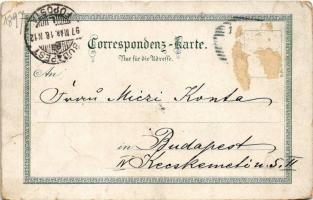 1897
BUDAPEST
FŐPOSTA
97 MAI. 18. N 12
Correspondenz-Karte.
Nur für die Adresse.
An
Frau Miczi Konta
in Budapest
IV Kecskemeti u. 5. II